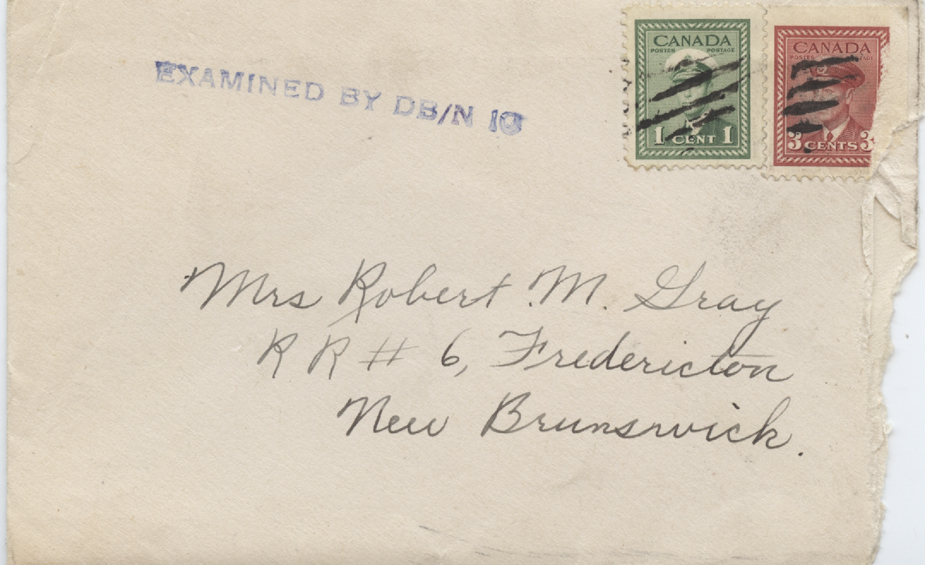 EXAMINED BY DB/N 10
CANADA
POSTES POSTAGE
1 CENT 1
CANADA
POSTES POSTAGE
3 CENTS 3
Mrs Robert M. Gray
R R # 6, Fredericton
New Brunswick.